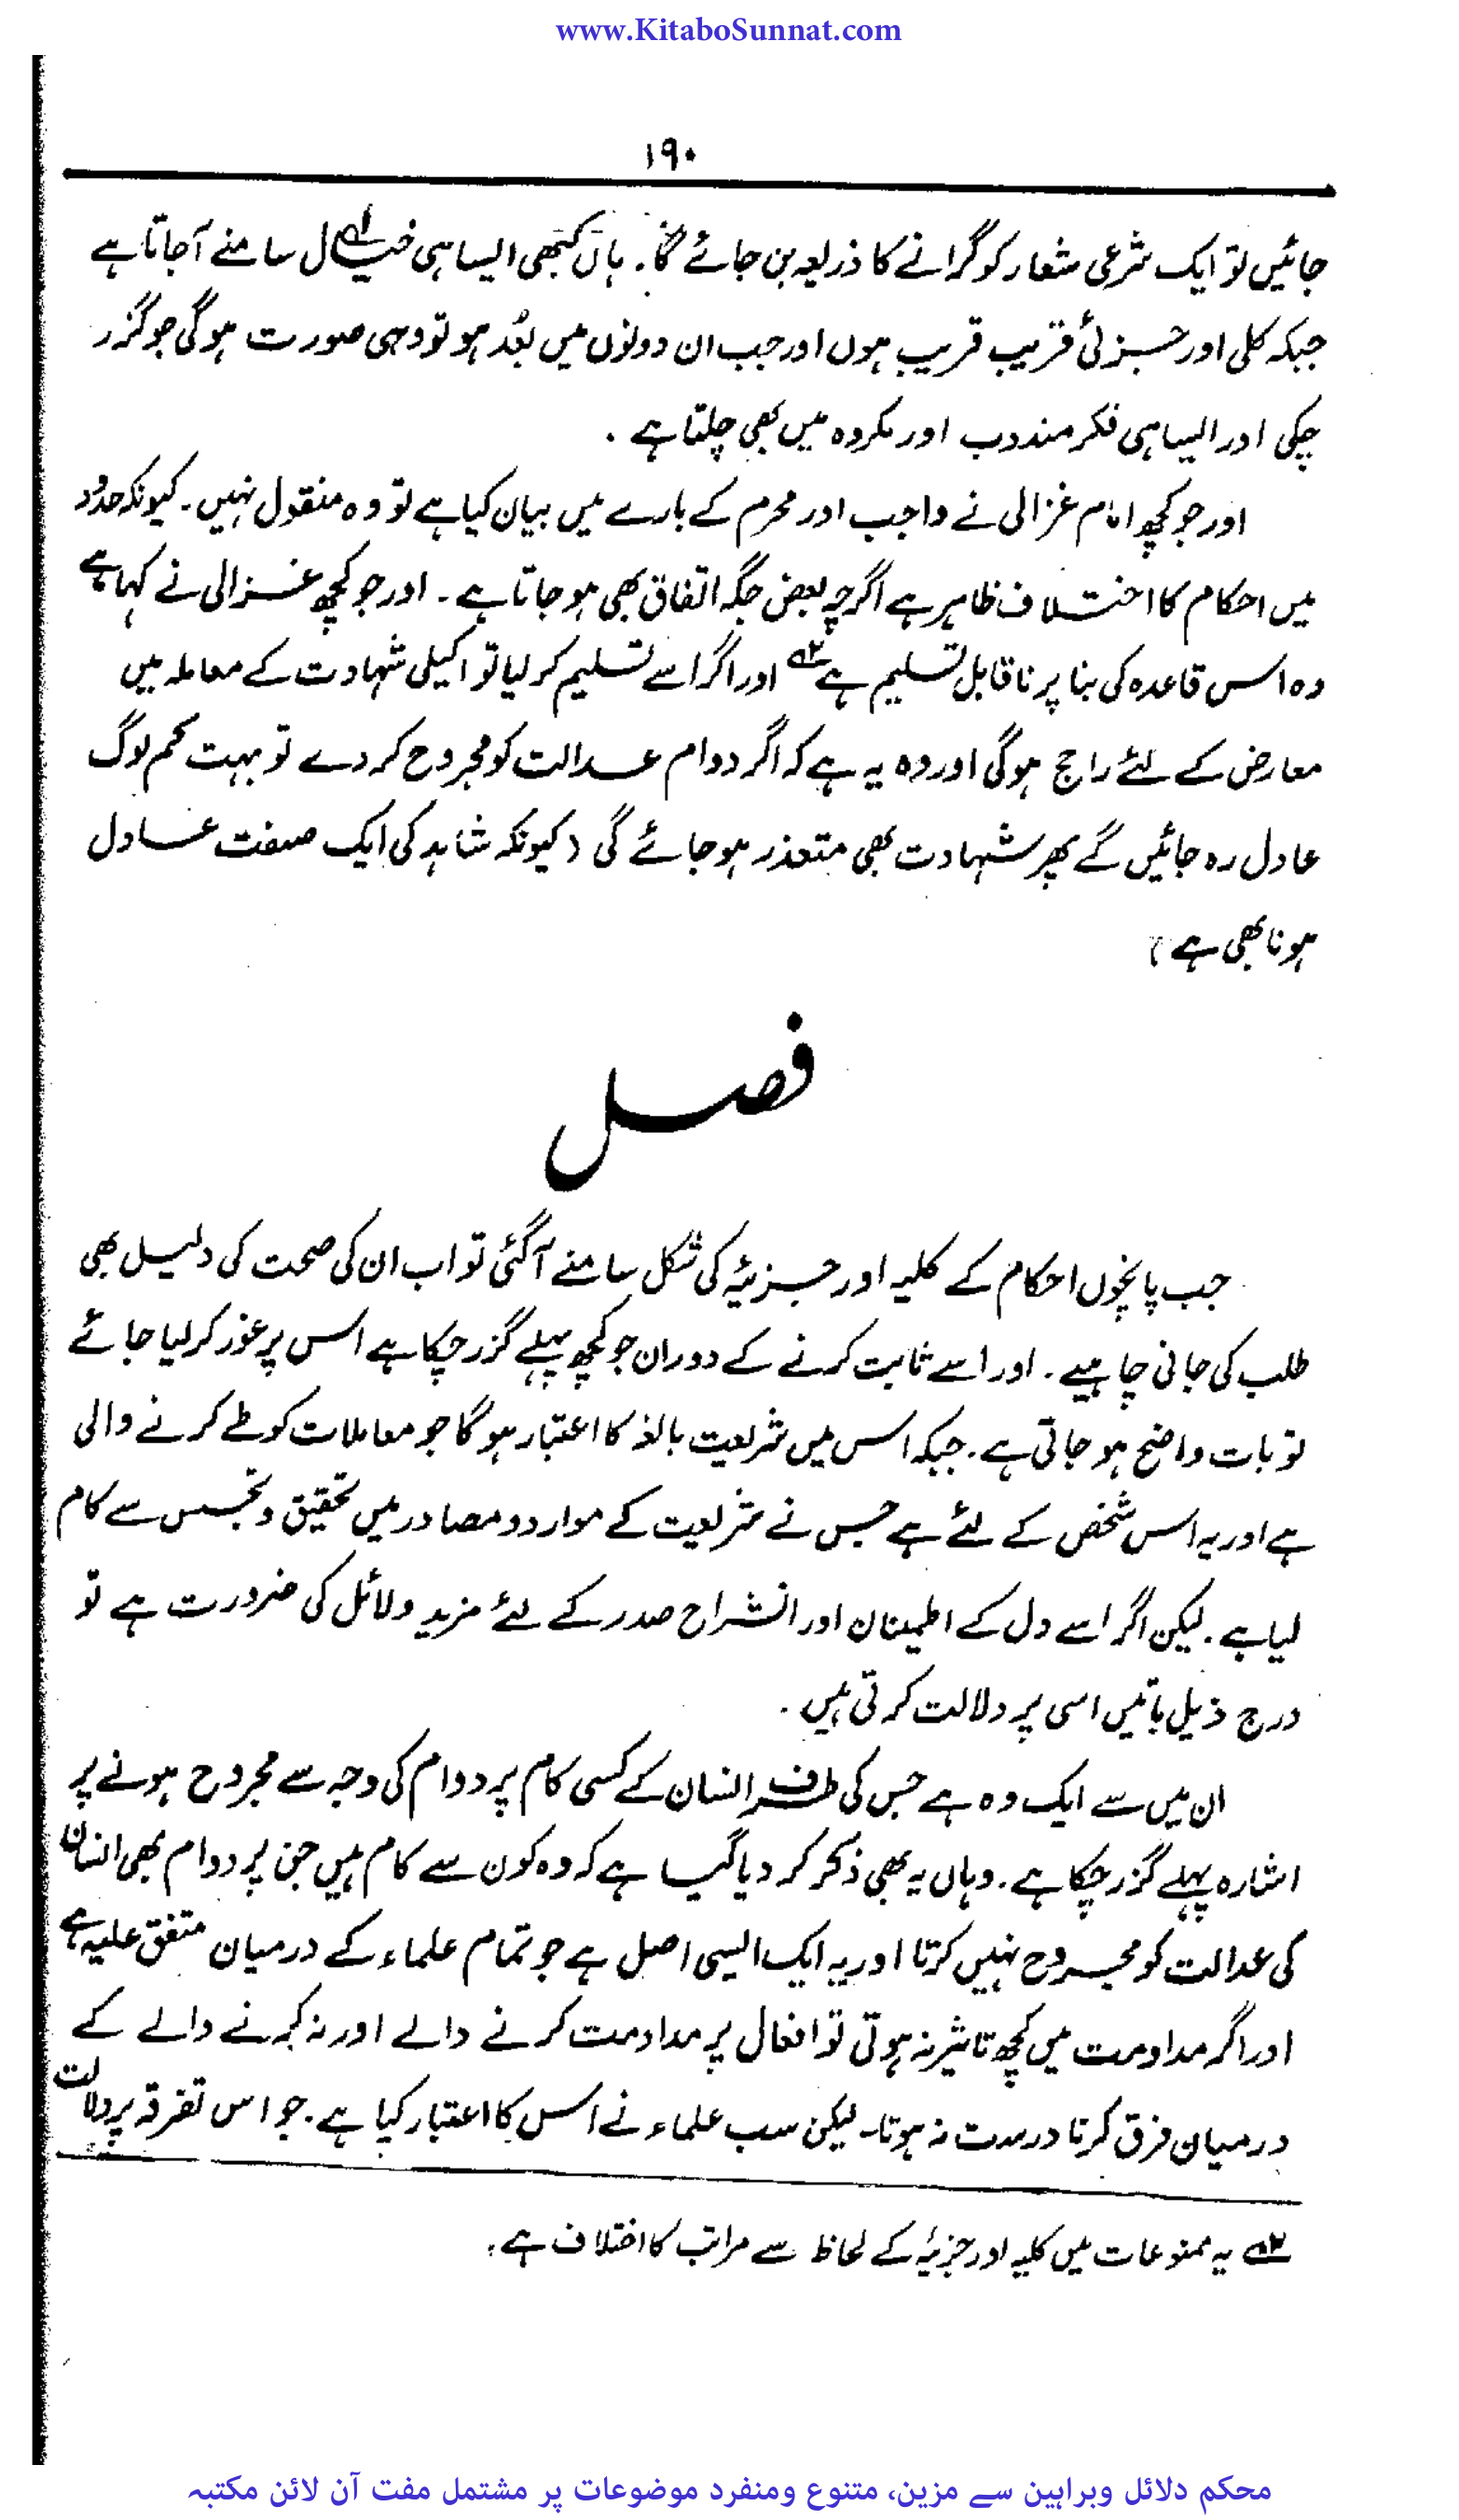 www.KitaboSunnat.com
۱۹۰
جائیں تو ایک شرعی شعار کو گرانے کا ذریعہ بن جائے گا۔ ہاں کبھی ایسا ہی خیال سامنے آجاتا ہے
جبکہ کلی اور جزئی قریب قریب ہوں اور جب ان دونوں میں بُعد ہو تو وہی صورت ہوگی جو گزر
چکی اور ایسا ہی فکر مندوب اور مکروہ میں بھی چلتا ہے ۔
اور جو کچھ امام غزالی نے واجب اور محرم کے بارے میں بیان کیا ہے تو وہ منقول نہیں۔ کیونکہ حدود
میں احکام کا اختلاف ظاہر ہے اگرچہ بعض جگہ اتفاق بھی ہو جاتا ہے ۔ اور جو کچھ غزالی نے کہا ہے
وہ اس قاعدہ کی بنا پر ناقابل تسلیم ہے اور اگر اسے تسلیم کر لیا تو اکیلی شہادت کے معاملہ میں
معارض کے لئے راجح ہوگی اور وہ یہ ہے کہ اگر دوام عدالت کو مجروح کر دے تو بہت کم لوگ
عادل رہ جائیں گے پھر شہادت بھی متعذر ہو جائے گی (کیونکہ شاہد کی ایک صفت عادل
ہونا بھی ہے )
فصل
جب پانچوں احکام کے کلیہ اور جزئیہ کی شکل سامنے آگئی تو اب ان کی صحت کی دلیل بھی
طلب کی جانی چاہیے ۔ اور اسے ثابت کرنے کے دوران جو کچھ پہلے گزر چکا ہے اس پر غور کر لیا جائے
تو بات واضح ہو جاتی ہے ۔ جبکہ اس میں شریعت بالذ کا اعتبار ہوگا جو معاملات کو طے کرنے والی
ہے اور یہ اس شخص کے لئے ہے جس نے شریعت کے موارد و مصادر میں تحقیق و تجسس سے کام
لیا ہے ۔ لیکن اگر اسے دل کے اطمینان اور انشراح صدر کے لئے مزید دلائل کی ضرورت ہے تو
درج ذیل باتیں اسی پر دلالت کرتی ہیں ۔
ان میں سے ایک وہ ہے جس کی طرف انسان کے کسی کام پر دوام کی وجہ سے مجروح ہونے پر
اشارہ پہلے گزر چکا ہے ۔ وہاں یہ بھی ذکر کر دیا گیا ہے کہ وہ کون سے کام ہیں جن پر دوام بھی انسان
کی عدالت کو مجروح نہیں کرتا اور یہ ایک ایسی اصل ہے جو تمام علماء کے درمیان متفق علیہ ہے
اور اگر مداومت میں کچھ تاثیر نہ ہوتی تو افعال پر مداومت کرنے والے اور نہ کرنے والے کے
درمیان فرق کرنا درست نہ ہوتا۔ لیکن سب علماء نے اس کا اعتبار کیا ہے ۔ جو اس تفرقہ پر دلالت
یہ ممنوعات میں کلیہ اور جزئیہ کے لحاظ سے مراتب کا اختلاف ہے ۔
محکم دلائل وبراہین سے مزین، متنوع ومنفرد موضوعات پر مشتمل مفت آن لائن مکتبہ